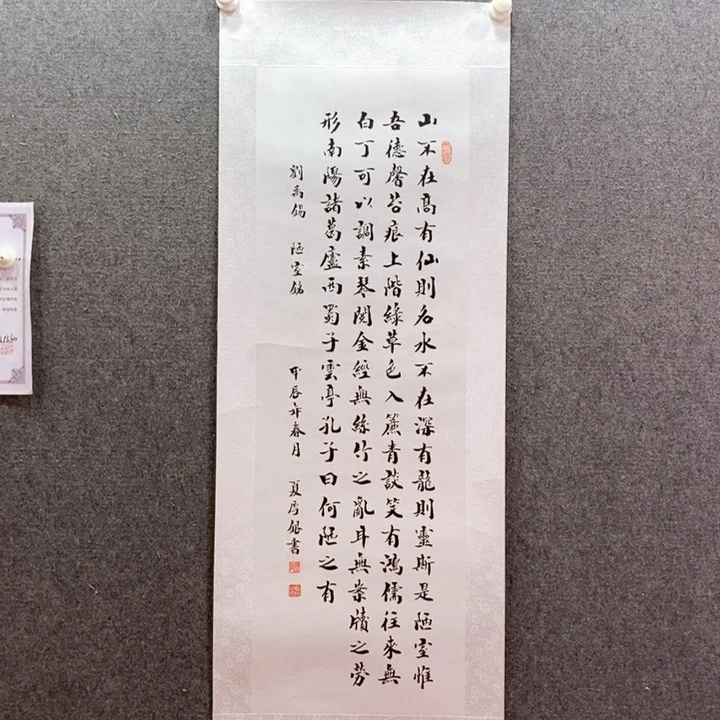 山不在高有仙則名水不在深有龍則靈斯是陋室惟
吾德馨苔痕上階綠草色入簾青談笑有鴻儒往來無
白丁可以調素琴閱金經無絲竹之亂耳無案牘之勞
形南陽諸葛廬西蜀子雲亭孔子曰何陋之有
劉禹錫 陋室銘 甲辰年春月 夏銀書